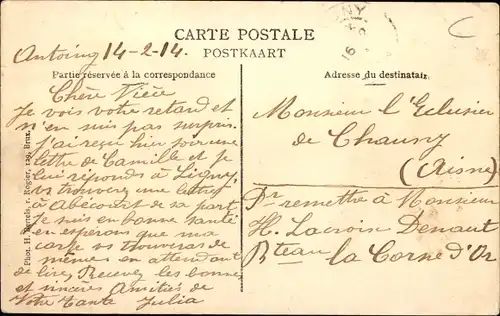 CARTE POSTALE
POSTKAART
Antoing 14-2-14.
Partie réservée à la correspondance
Chère Nièce
Je vois votre retard et
n'en suis pas surpris.
J'ai reçu hier soir une
lettre de Camille et je
lui réponds à Ligny,
vs trouverez une lettre
à Abécourt de sa part
Je suis en bonne santé
en esperons que ma
carte vs trouveras de
même en attendant
de lire, Recevez les bonne
et sincères Amitiés de
Votre tante Julia
Phot. H. r. Rogier, 129, Brux.
Adresse du destinatair.
Monsieur l'Eclusier
de Chauny
(Aisne)
Pr remettre à Monsieur
H. Lacroix Denaut
Bteau la Corne d'Or
16
NY